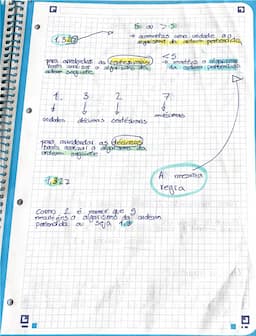 = ou > 5
→ aumentas uma unidade ao
algarismo da ordem pretendida
1,327
para arredondar às centésimas
basta analisar o algarismo da
ordem seguinte
< 5
→ mantém o algarismo
da ordem pretendida
1, 3 2 7
unidades décimas centésimas milésimas
para arredondar às décimas
basta analisar o algarismo da
ordem seguinte
A mesma
regra
1,327
como 2 é menor que 5
mantém o algarismo da ordem
pretendida ou seja 1,3